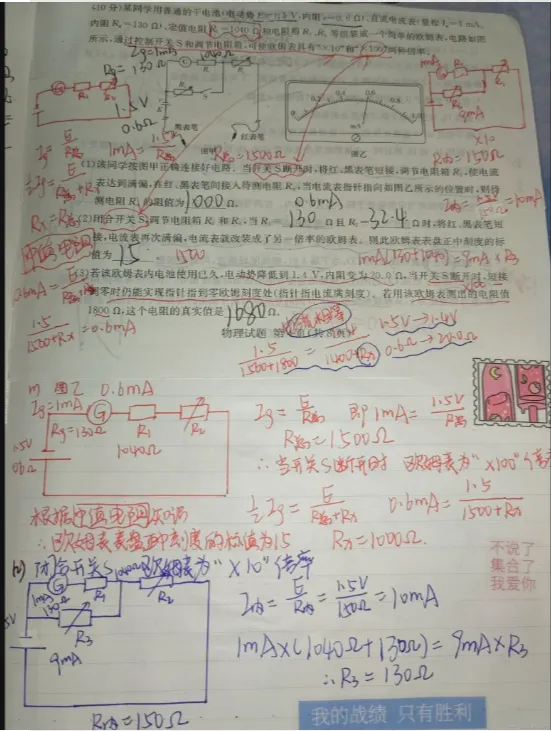 (10分)某同学用普通的干电池(电动势E=1.5V,内阻r=0.6Ω)、直流电流表(量程Ig=1mA,
内阻Rg=130Ω)、定值电阻R₁=1040Ω和电阻箱R₂、R₃等组装成一个简单的欧姆表,电路如图
所示,通过控制开关S和调节电阻箱,可使欧姆表具有"×10"和"×100"两种倍率。
Ig=1mA
Rg=130Ω
1040Ω
1.5V
0.6Ω
黑表笔
红表笔
图甲
图乙
mA
9mA
×10
R内=150Ω
R内=1500Ω
(1)该同学按图甲正确连接好电路。当开关S断开时,将红、黑表笔短接,调节电阻箱R₂,使电流
表达到满偏,在红、黑表笔间接入待测电阻Rₓ,当电流表指针指向如图乙所示的位置时,则待
测电阻Rₓ的阻值为1000Ω.
0.6mA
(2)闭合开关S,调节电阻箱R₂和R₃,当R₂=32.4Ω且R₃=130Ω时,将红、黑表笔短
接,电流表再次满偏,电流表就改装成了另一倍率的欧姆表。则此欧姆表表盘正中刻度的标
值为15
1500
1mA(130+1040)=9mA×R₃
中值电阻
(3)若该欧姆表内电池使用已久,电动势降低到1.4V,内阻变为20.0Ω,当开关S断开时,短接
调零时仍能实现指针指到零欧姆刻度处(指针指电流满刻度)。若用该欧姆表测出的电阻值
1800Ω,这个电阻的真实值是1680Ω.
物理试题
1.5V→1.4V
0.6Ω→20.0Ω
1.5/(1500+Rx)=0.6mA
(1) 图乙 0.6mA
Ig=1mA
Rg=130Ω
G
R₁
R₂
1040Ω
1.5V
Ig=E/R内 即1mA=1.5V/R内
R内=1500Ω
∴当开关S断开时 欧姆表为"×100"倍率
½Ig=E/(R内+Rx) 0.6mA=1.5/(1500+Rx)
Rx=1000Ω.
根据中值电阻知识
∴欧姆表表盘正中刻度的标值为15
不说了
集合了
我爱你
(2) 闭合开关S 欧姆表为"×10"倍率
G
R₁
R₂
1mA
130Ω
R₃
9mA
I内=E/R内=1.5V/150Ω=10mA
1mA×(1040Ω+130Ω)=9mA×R₃
∴R₃=130Ω
R内=150Ω
我的战绩 只有胜利